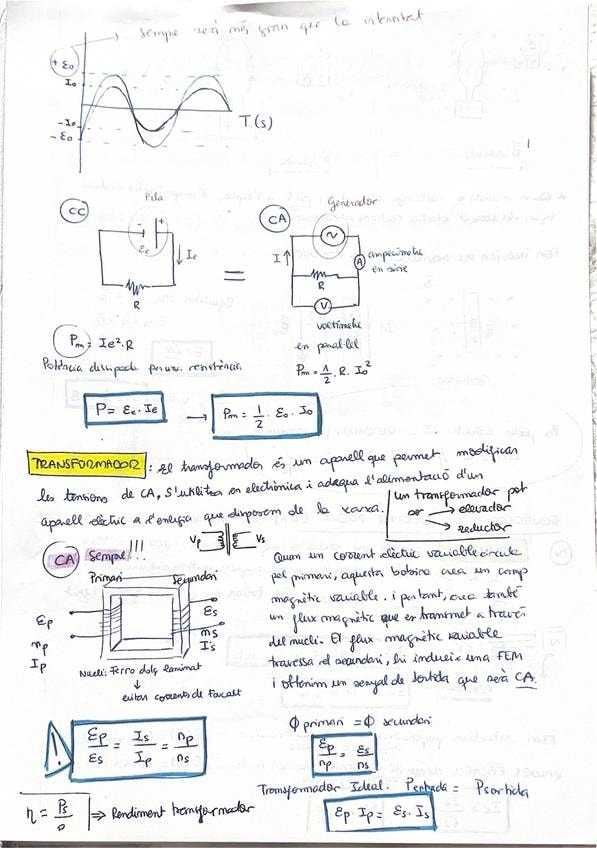 Sempre serà més gran que la intensitat
+ Ɛo
Io
-Io
-Ɛo
T(s)
CC
Pila
- +
Ɛe
Ie
R
=
CA
Generador
I
A
amperímetre
en sèrie
R
V
voltímetre
en paral·lel
Pm = Ie²·R
Potència dissipada per una resistència
Pm = 1/2 · R · Io²
P = Ɛe · Ie → Pm = 1/2 · Ɛo · Io
TRANSFORMADOR: El transformador és un aparell que permet modificar
les tensions de CA, s'utilitza en electrònica i adequa l'alimentació d'un
aparell elèctric a l'energia que disposem de la xarxa.
un transformador pot
ser → elevador
→ reductor
Vp Vs
CA Sempre!!!
Primari Segundari
Ɛp
np
Ip
Ɛs
ns
Is
Nucli: Ferro dolç laminat
↓
eviten corrents de Foucalt
Quan un corrent elèctric variable circula
pel primari, aquesta bobina crea un camp
magnètic variable. i pertant, crea també
un flux magnètic que es transmet a través
del nucli. El flux magnètic variable
travessa el segundari, hi indueix una FEM
i obtenim un senyal de sortida que serà CA.
Φ primari = Φ secundari
! Ɛp/Ɛs = Is/Ip = np/ns
Ɛp/np = Ɛs/ns
Transformador Ideal. Pentrada = Psortida
Ɛp · Ip = Ɛs · Is
η = Ps/ ⇒ Rendiment transformador